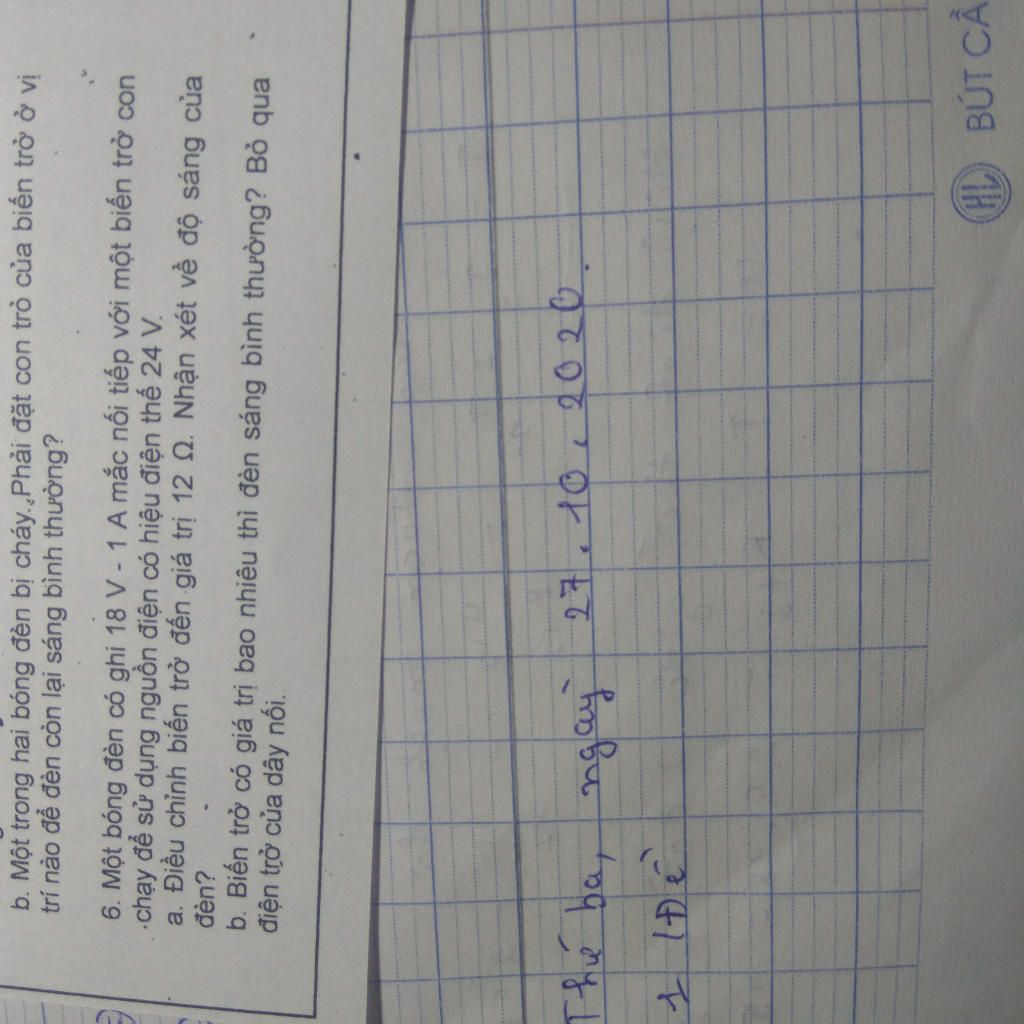 b. Một trong hai bóng đèn bị cháy. Phải đặt con trỏ của biến trở ở vị
trí nào để đèn còn lại sáng bình thường?
6. Một bóng đèn có ghi 18 V - 1 A mắc nối tiếp với một biến trở con
chạy để sử dụng nguồn điện có hiệu điện thế 24 V.
a. Điều chỉnh biến trở đến giá trị 12 Ω. Nhận xét về độ sáng của
đèn?
b. Biến trở có giá trị bao nhiêu thì đèn sáng bình thường? Bỏ qua
điện trở của dây nối.
Thứ ba, ngày 27.10.2020.
1 Đề
HL BÚT CẢ